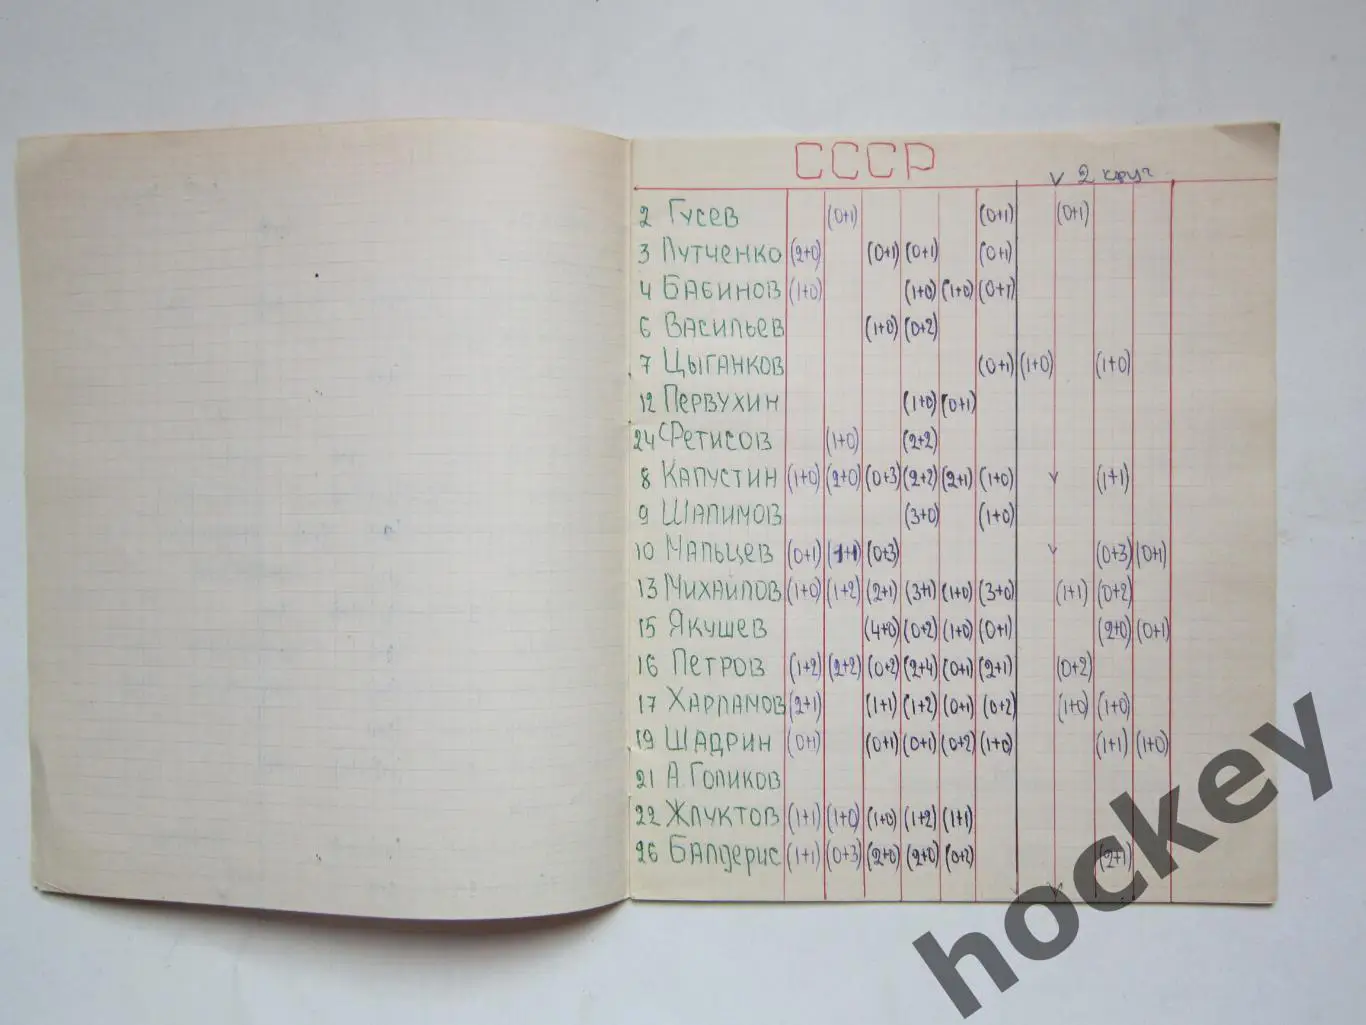 СССР
2 круг
2 Гусев (0+1) (0+1) (0+1)
3 Лутченко (2+0) (0+1) (0+1) (0+1)
4 Бабинов (1+0) (1+0) (1+0) (0+1)
6 Васильев (1+0) (0+2)
7 Цыганков (0+1) (1+0) (1+0)
12 Первухин (1+0) (0+1)
24 Фетисов (1+0) (2+2)
8 Капустин (1+0) (2+0) (0+3) (2+2) (2+1) (1+0) (1+1)
9 Шалимов (3+0) (1+0)
10 Мальцев (0+1) (1+1) (0+3) (0+3) (0+1)
13 Михайлов (1+0) (1+2) (2+1) (3+1) (1+0) (3+0) (1+1) (0+2)
15 Якушев (4+0) (0+2) (1+0) (0+1) (2+0) (0+1)
16 Петров (1+2) (2+2) (0+2) (2+4) (0+1) (2+1) (0+2)
17 Харламов (2+1) (1+1) (1+2) (0+1) (0+2) (1+0) (1+0)
19 Шадрин (0+1) (0+1) (0+1) (0+2) (1+0) (1+1) (1+0)
21 А.Голиков
22 Жлуктов (1+1) (1+0) (1+0) (1+2) (1+1)
26 Балдерис (1+1) (0+3) (2+0) (2+0) (0+2) (2+1)
hockey